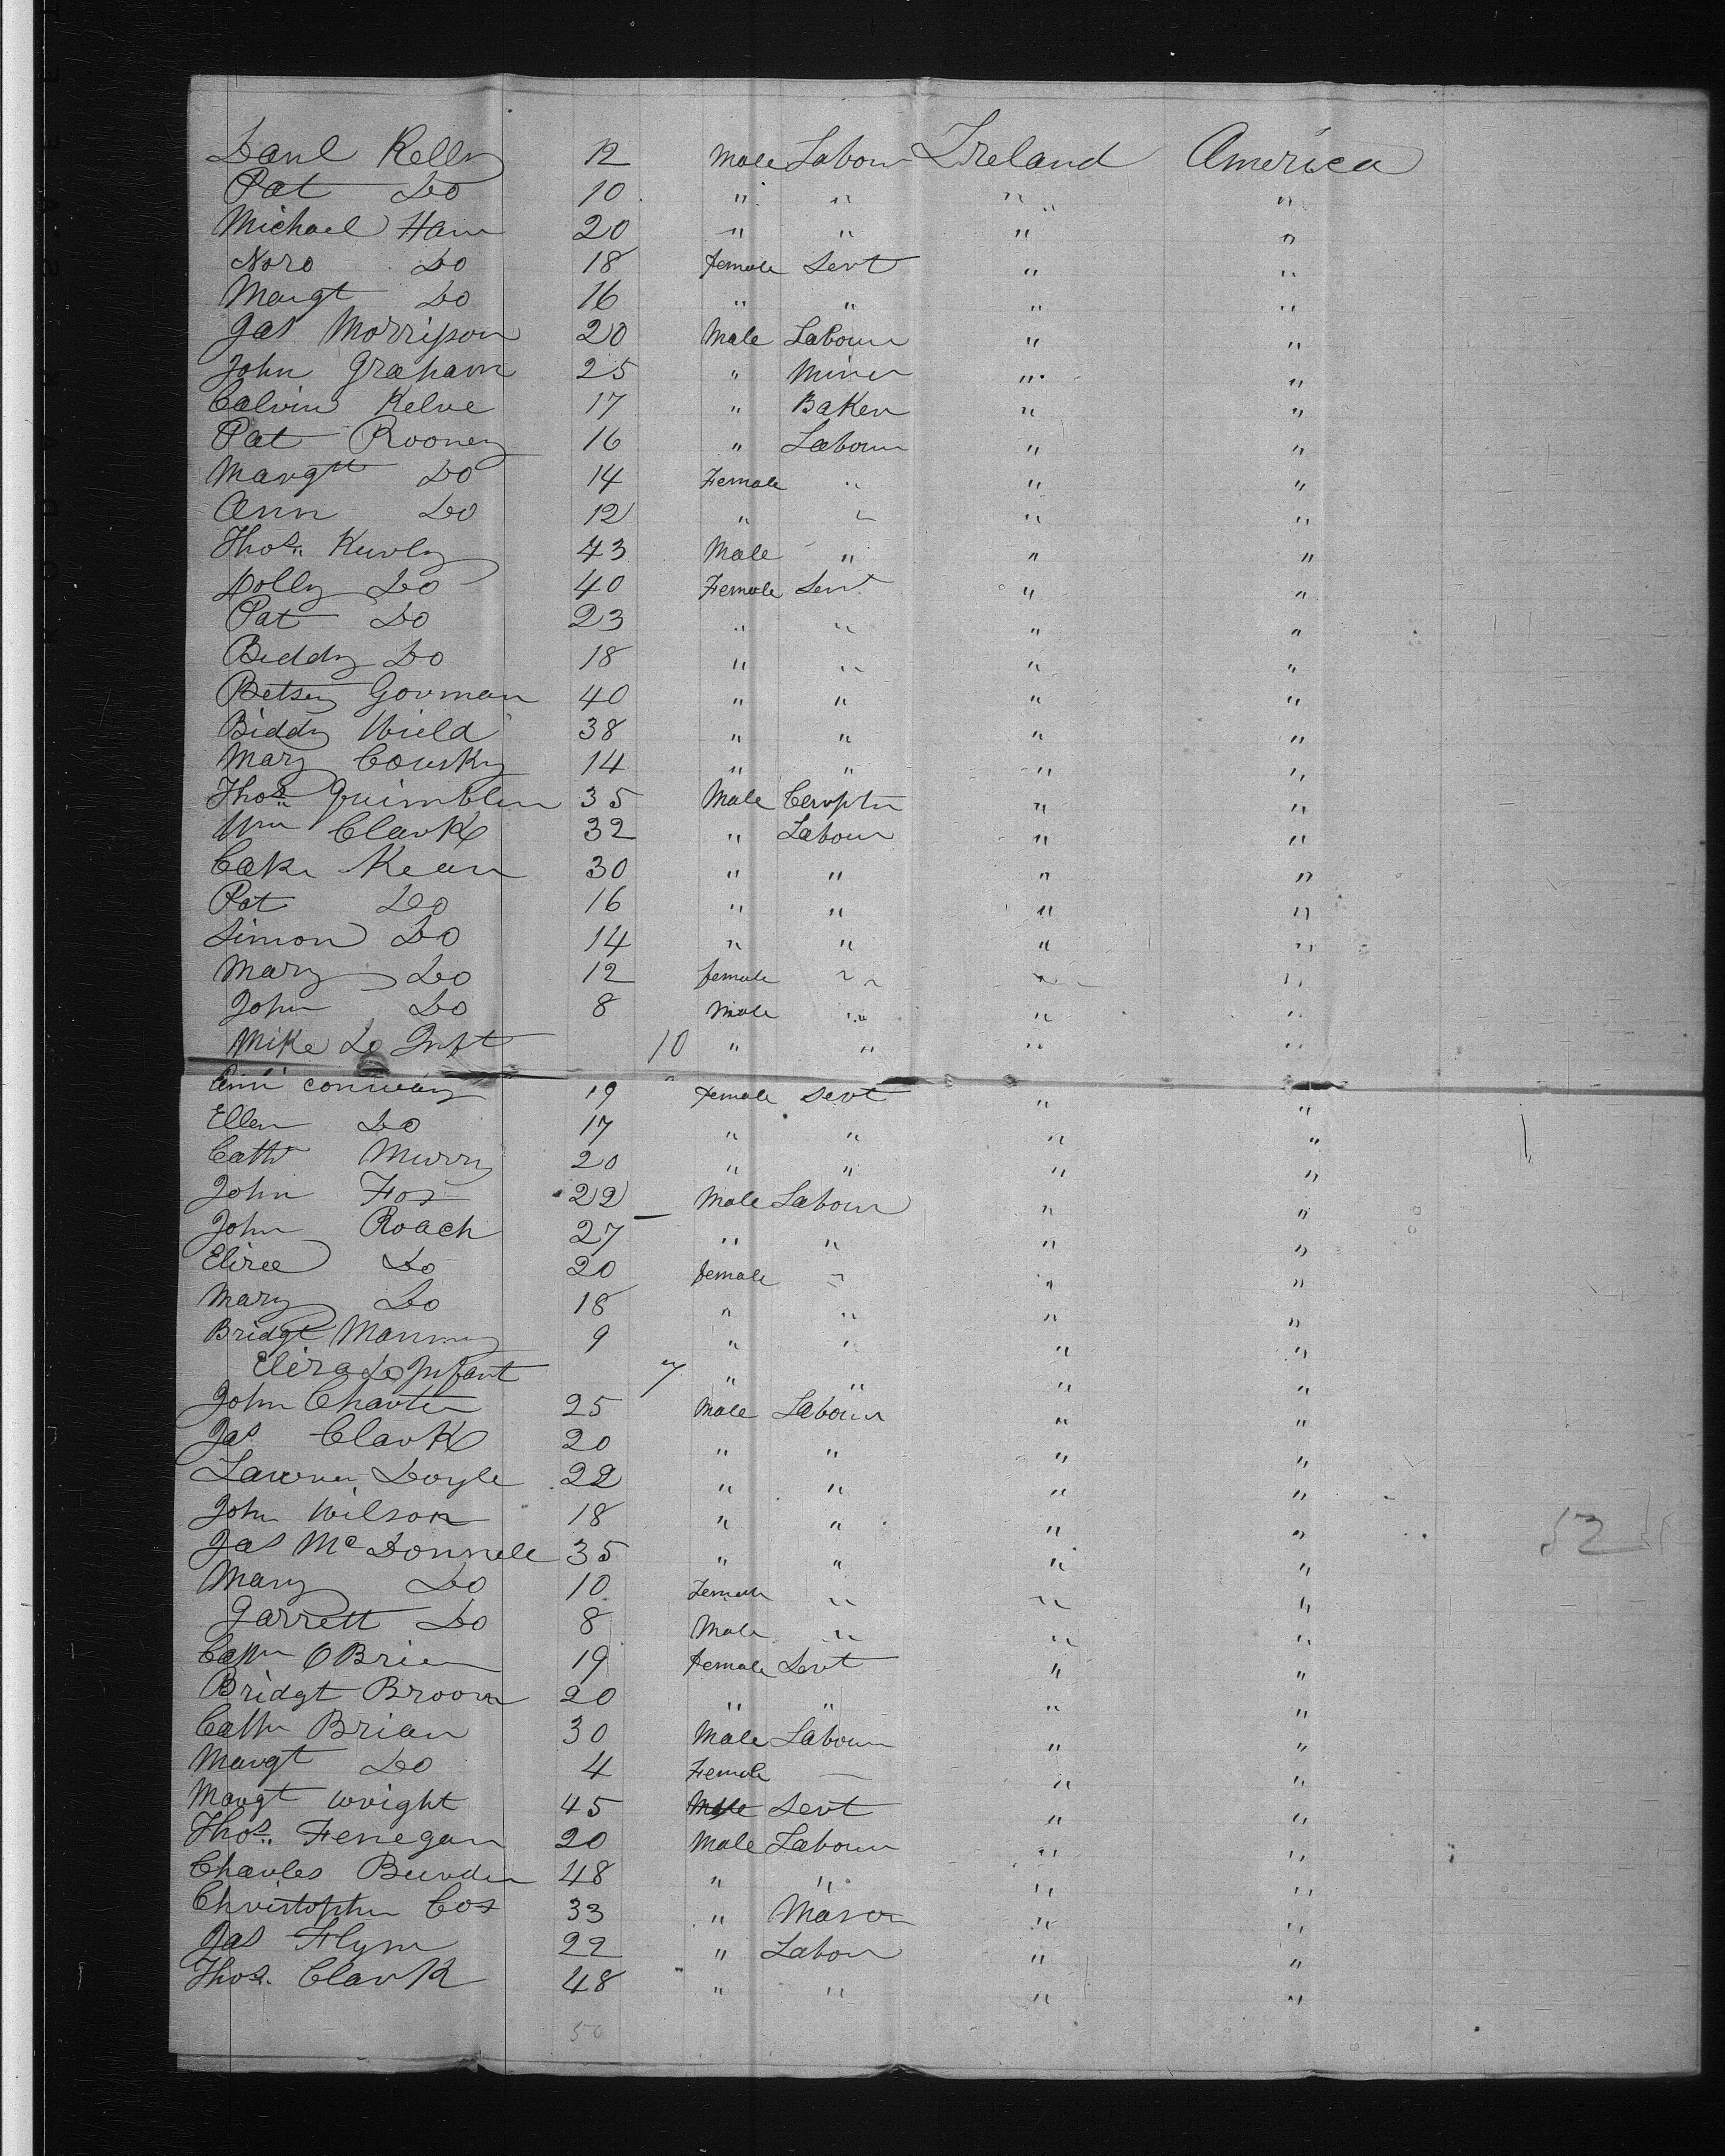 Danl Kelly 12 Male Labour Ireland America
Pat Do 10 " " " "
Michael Ham 20 " " " "
Nora Do 18 female Servt " "
Margt Do 16 " " " "
Jas Morrison 20 Male Labour " "
John Graham 25 " Miner " "
Calvin Kelve 17 " Baker " "
Pat Rooney 16 " Labour " "
Margtt Do 14 Female " " "
Ann Do 12 " " " "
Thos. 43 Male " " "
Dolly Do 40 Female Servt " "
Pat Do 23 " " " "
Biddy Do 18 " " " "
Betsey Gorman 40 " " " "
Biddy Wield 38 " " " "
Mary 14 " " " "
Thos. 35 Male Carptr " "
Wm Clark 32 " Labour " "
Kean 30 " " " "
Pat Do 16 " " " "
Simon Do 14 " " " "
Mary Do 12 female " " "
John Do 8 Male " " "
Mike Do Inft 10 " " " "
Ann Conway 19 female Servt " "
Ellen Do 17 " " " "
Cathr Murry 20 " " " "
John Fox 22 Male Labour " "
John Roach 27 " " " "
Do 20 female " " "
Mary Do 18 " " " "
Bridgt Manning 9 " " " "
Eliza Do Infant 7 " " " "
John Charter 25 Male Labour " "
Jas Clark 20 " " " "
Doyle 22 " " " "
John Wilson 18 " " " "
Jas McDonnell 35 " " " "
Mary Do 10 Female " " "
Garrett Do 8 Male " " "
OBrien 19 Female Servt " "
Bridgt Broom 20 " " " "
Cathr Brian 30 Male Labour " "
Margt Do 4 Female — " "
Margt Wright 45 Male Servt " "
Thos. Fenegan 20 Male Labour " "
Charles Burden 48 " " " "
Christopher Cox 33 " Mason " "
Jas Flynn 22 " Labour " "
Thos. Clark 48 " " " "
52